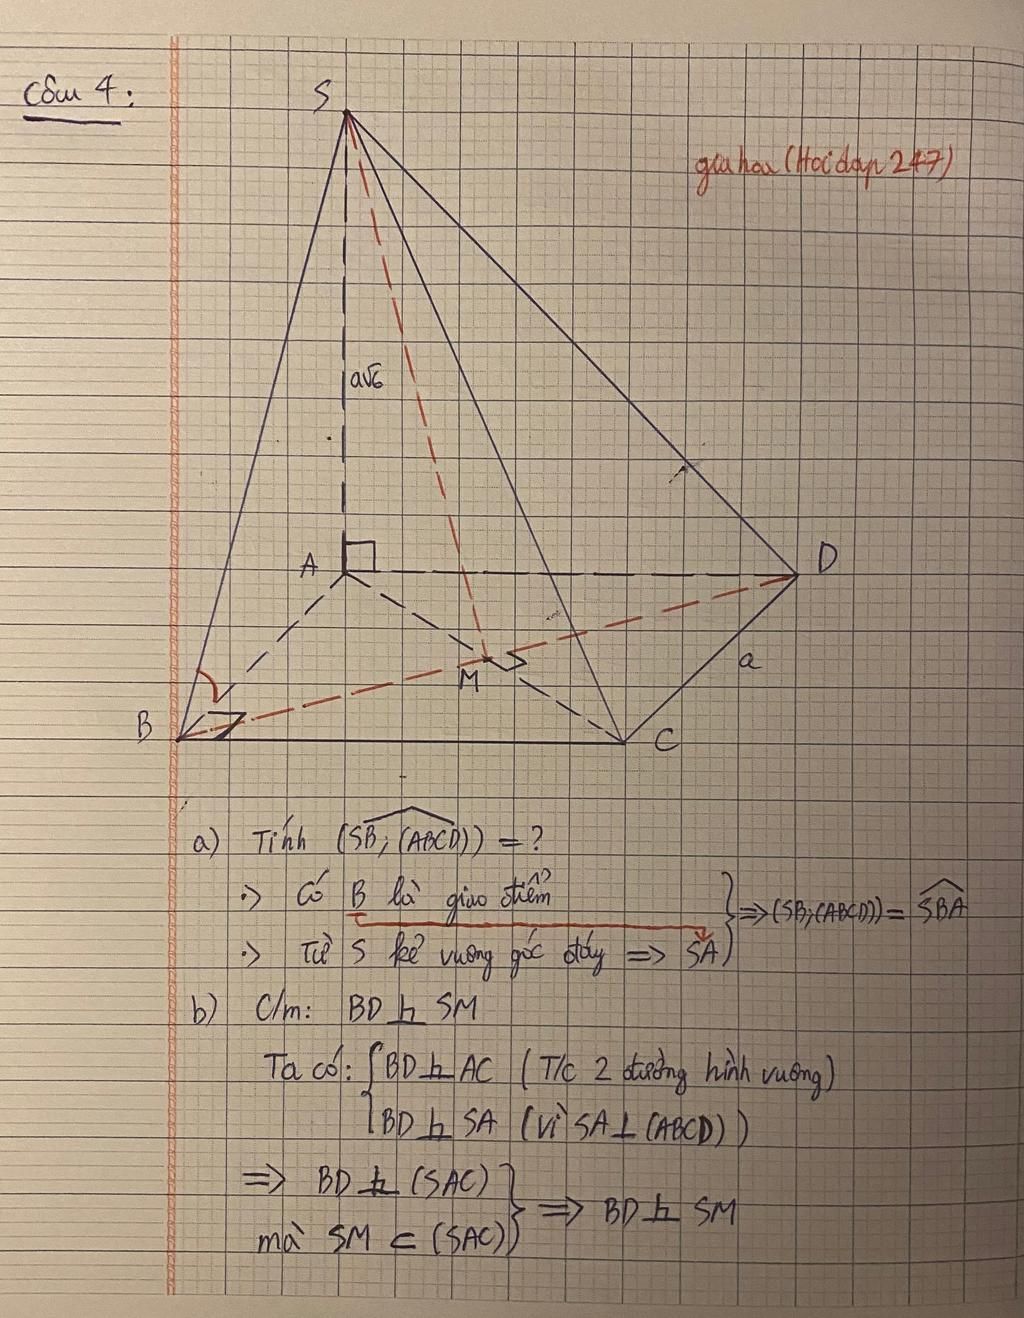 Câu 4:
S
giahan (Hoidap 247)
a√6
A
D
M
a
B
C
a) Tính (SB; (ABCD)) = ?
·> Có B là giao điểm
·> Từ S kẻ vuông góc đáy => SA
} => (SB;(ABCD)) = SBA
b) C/m: BD ⊥ SM
Ta có: { BD ⊥ AC ( T/c 2 đường hình vuông)
BD ⊥ SA (vì SA ⊥ (ABCD))
=> BD ⊥ (SAC)
mà SM ⊂ (SAC)
} => BD ⊥ SM